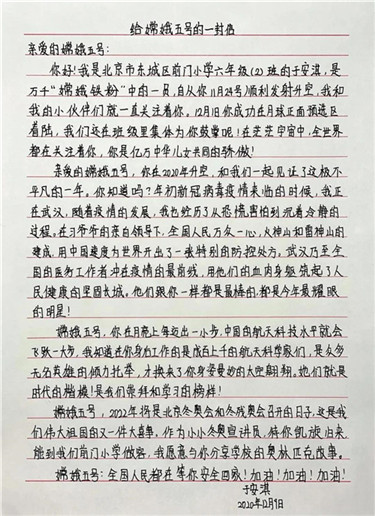 给嫦娥五号的一封信
亲爱的嫦娥五号:
你好!我是北京市东城区前门小学六年级(2)班的于安淇,是
万千“嫦娥铁粉”中的一员,自从你11月24号顺利发射升空,我和
我的小伙伴们就一直关注着你。12月1日你成功在月球正面预选区
着陆,我们还在班级里集体为你鼓掌呢!在茫茫宇宙中,全世界
都在关注着你,你是亿万中华儿女共同的骄傲!
亲爱的嫦娥五号,你在2020年升空,和我们一起见证了这极不
平凡的一年。你知道吗?年初新冠病毒疫情来临的时候,我正
在武汉,随着疫情的发展,我也经历了从恐慌害怕到沉着冷静的
过程,在习爷爷的亲自领导下,全国人民万众一心,火神山和雷神山的
建成,用中国速度为世界开出了一张特别的防控处方。武汉乃至全
国的医务工作者冲在疫情的最前线,用他们的血肉身躯筑起了人
民健康的坚固长城。他们跟你一样都是最棒的,都是今年最耀眼
的明星!
嫦娥五号,你在月亮上每迈出一小步,中国的航天科技水平就会
飞跃一大步,我知道在你身后工作的是成百上千的航天科学家们,是众多
无名英雄的倾力托举,才换来了你身姿曼妙的太空翱翔。他们就是
时代的楷模!是我们崇拜和学习的榜样!
嫦娥五号,2022年将是北京冬奥会和冬残奥会召开的日子,这是我
们伟大祖国的又一件大喜事,作为小小冬奥宣讲员,待你凯旋归来
能到我们前门小学做客,我愿意与你分享学校的奥林匹克故事。
嫦娥五号:全国人民都在等你安全回家!加油!加油!加油!
于安淇
2020年12月9日